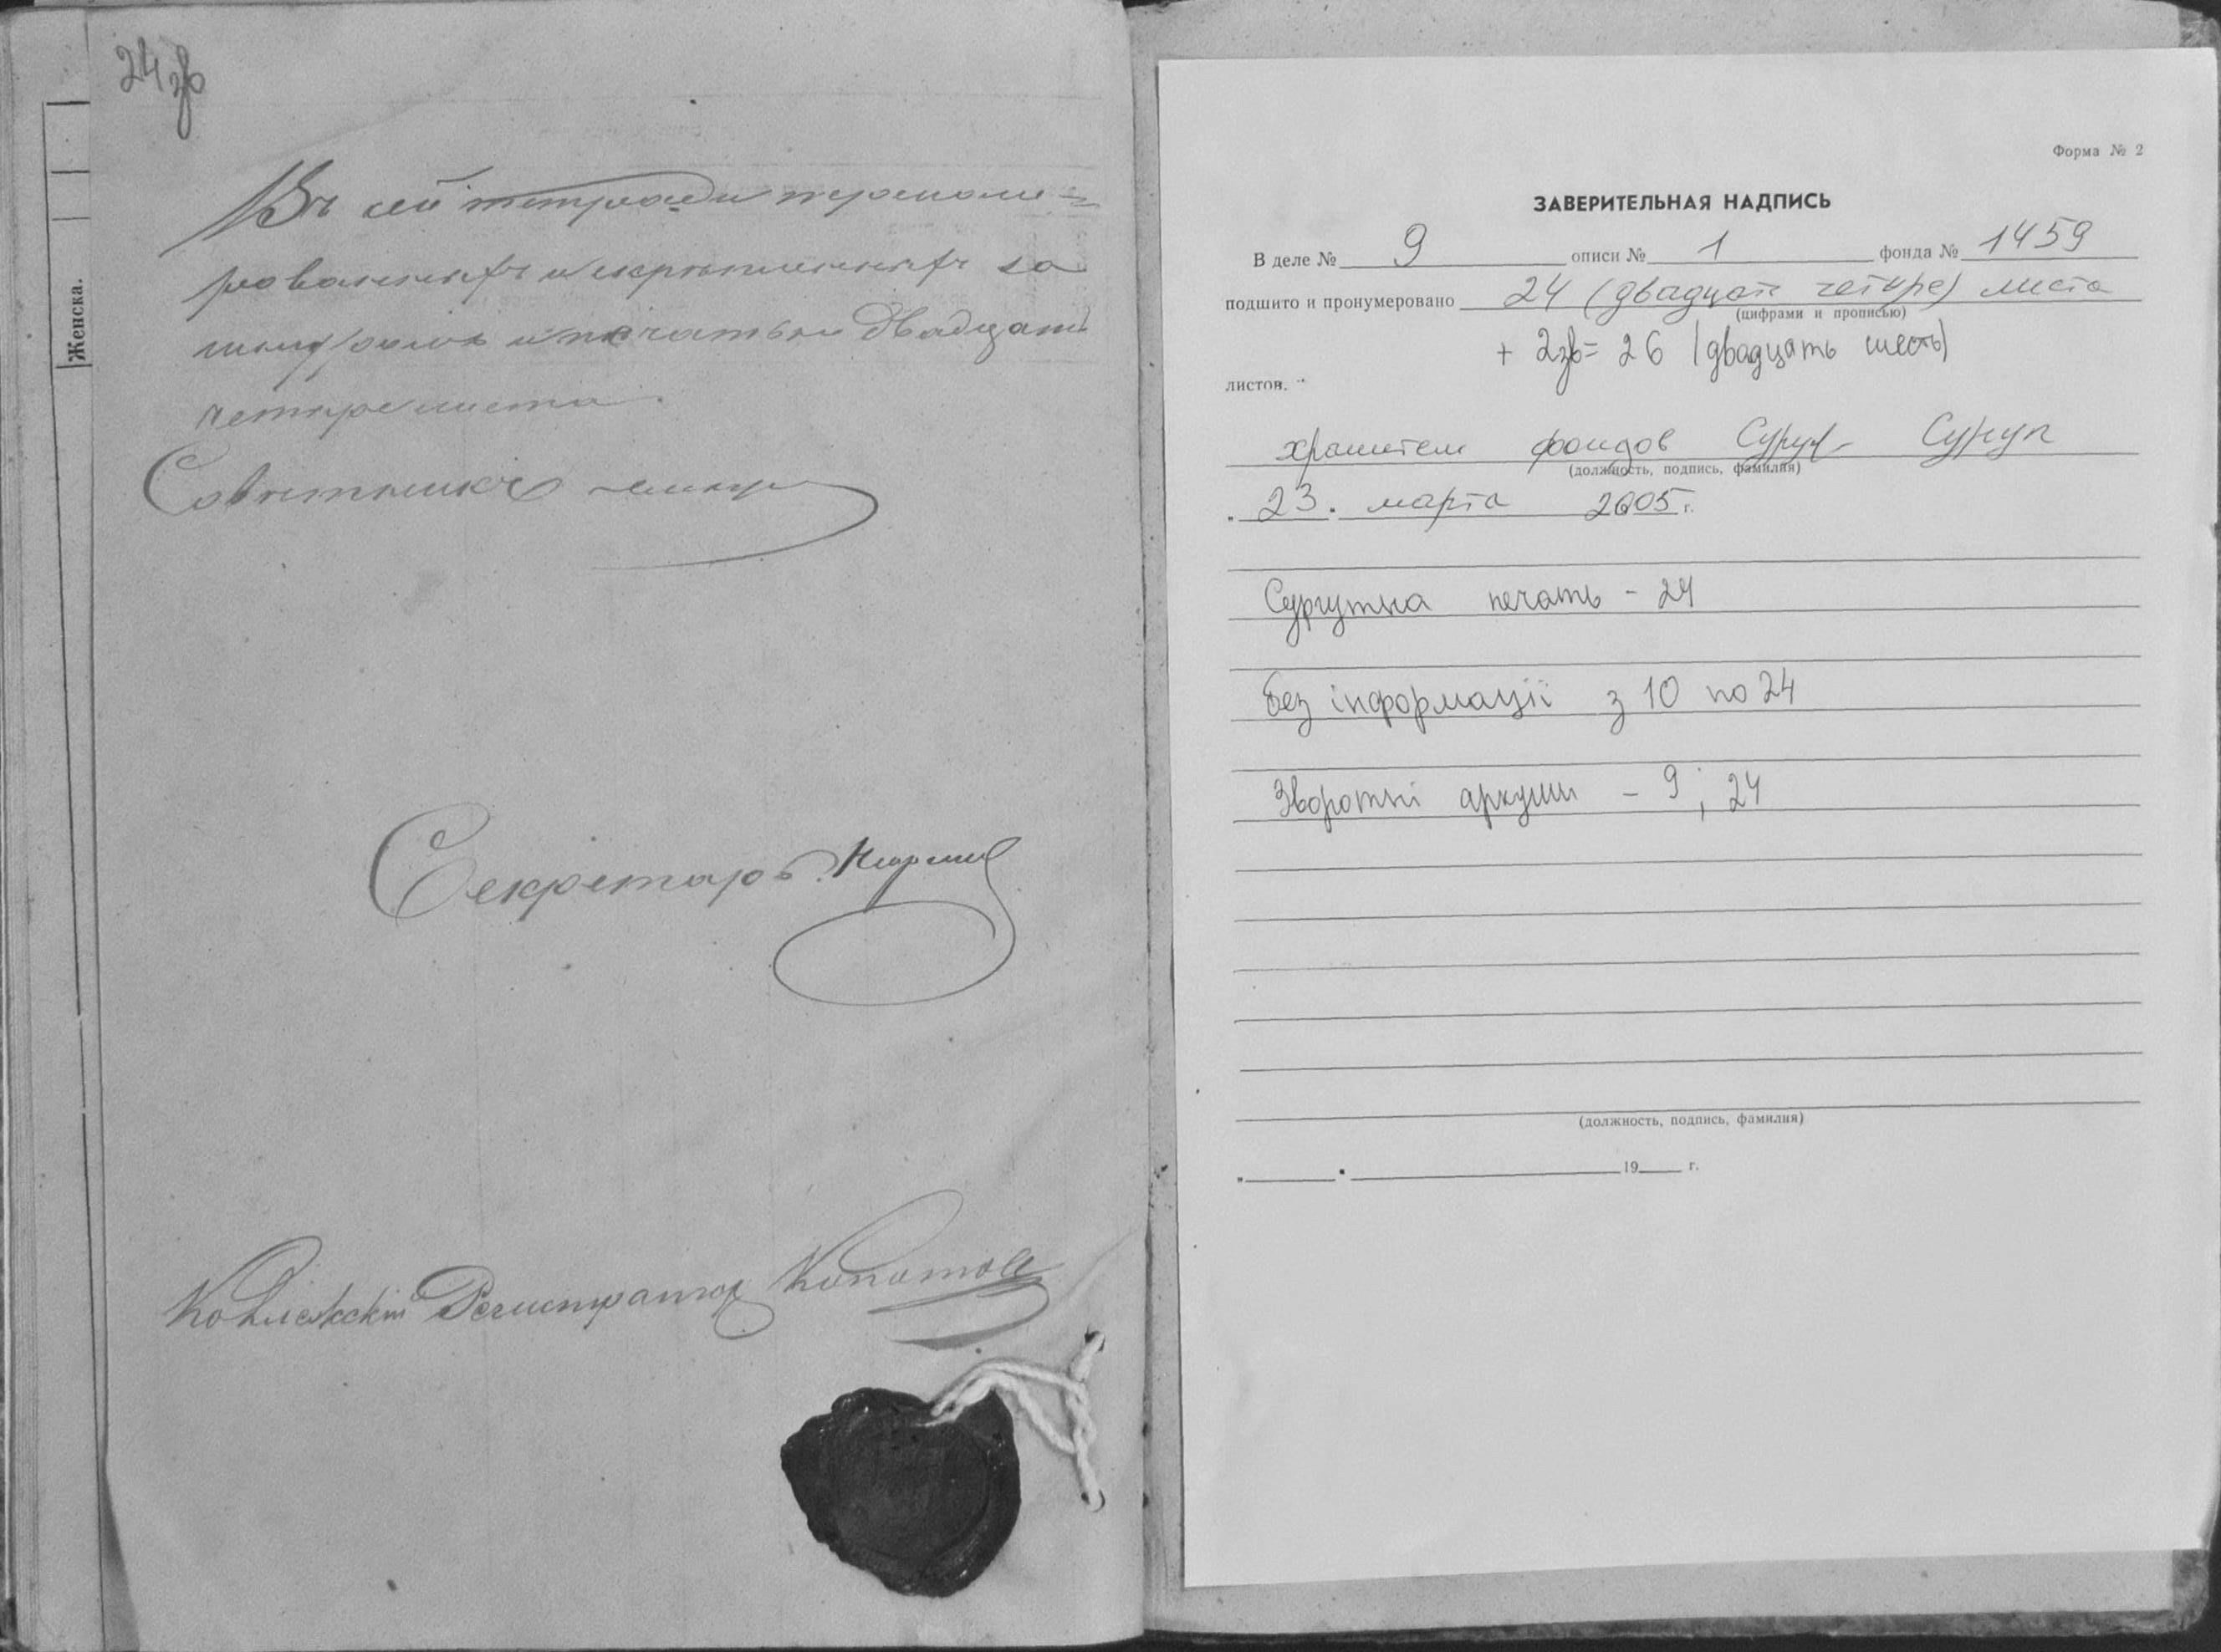 24 зв
Женска.
Въ сей тетради перономе=
рованныхъ и скрѣпленныхъ за
шнуромъ и печатью двадцать
четыре листа.
Совѣтникъ
Секретарь
Коллежскій Регистраторъ
Форма № 2
ЗАВЕРИТЕЛЬНАЯ НАДПИСЬ
В деле № 9 описи № 1 фонда № 1459
подшито и пронумеровано 24 (двадцать четыре) листа
(цифрами и прописью)
+ 2зв = 26 (двадцать шесть)
листов.
хранитель фондов
(должность, подпись, фамилия)
„ 23 " марта 2005 г.
Сургутна печать - 24
Без інформації з 10 по 24
Зворотні аркуши - 9; 24
(должность, подпись, фамилия)
„ " 19 г.